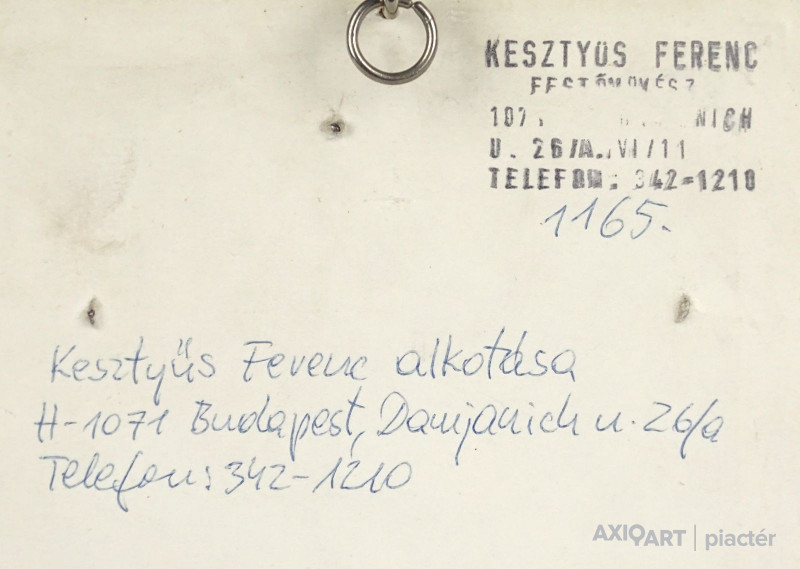 KESZTYŰS FERENC
FESTŐMŰVÉSZ
U. 26/A. VI/11
TELEFON: 342-1210
1165.
Kesztyűs Ferenc alkotása
H-1071 Budapest, Damjanich u. 26/a
Telefon: 342-1210
AXIOART | piactér